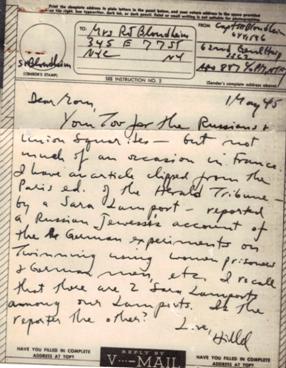 Print the complete address in plain letters in the panel below, and your return address in the space provided
TO:
Mrs RJ Blondheim
345 E 77 ST
NYC NY
FROM
Capt Blondheim
62nd Genl Hosp
APO 887 % PM NY
S Blondheim
(CENSOR'S STAMP)
SEE INSTRUCTION NO. 2
(Sender's complete address above)
Dear Mom, 1 May 45
Your Tov for the Russians &
Union Square-ites — but not
much of an occasion in France
I have an article clipped from the
Paris ed. of the Herald Tribune —
by a Sara Lamport — reported
a Russian Jewess's account of
the German experiments on
Twinning using women prisoners
& German men, etc. I recall
that there are 2 Sara Lamports
among our Lamports. Is the
reporter the other?
Love,
HAVE YOU FILLED IN COMPLETE
ADDRESS AT TOP?
REPLY BY
V···-MAIL
HAVE YOU FILLED IN COMPLETE
ADDRESS AT TOP?